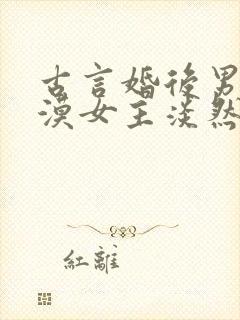 古言婚後男
漠女主淡然
紅離